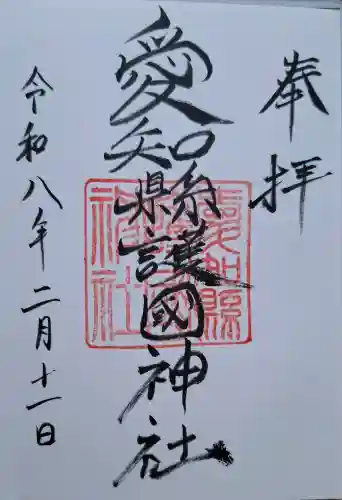 奉拝
愛知縣護國神社
令和八年二月十一日
愛知縣護國神社